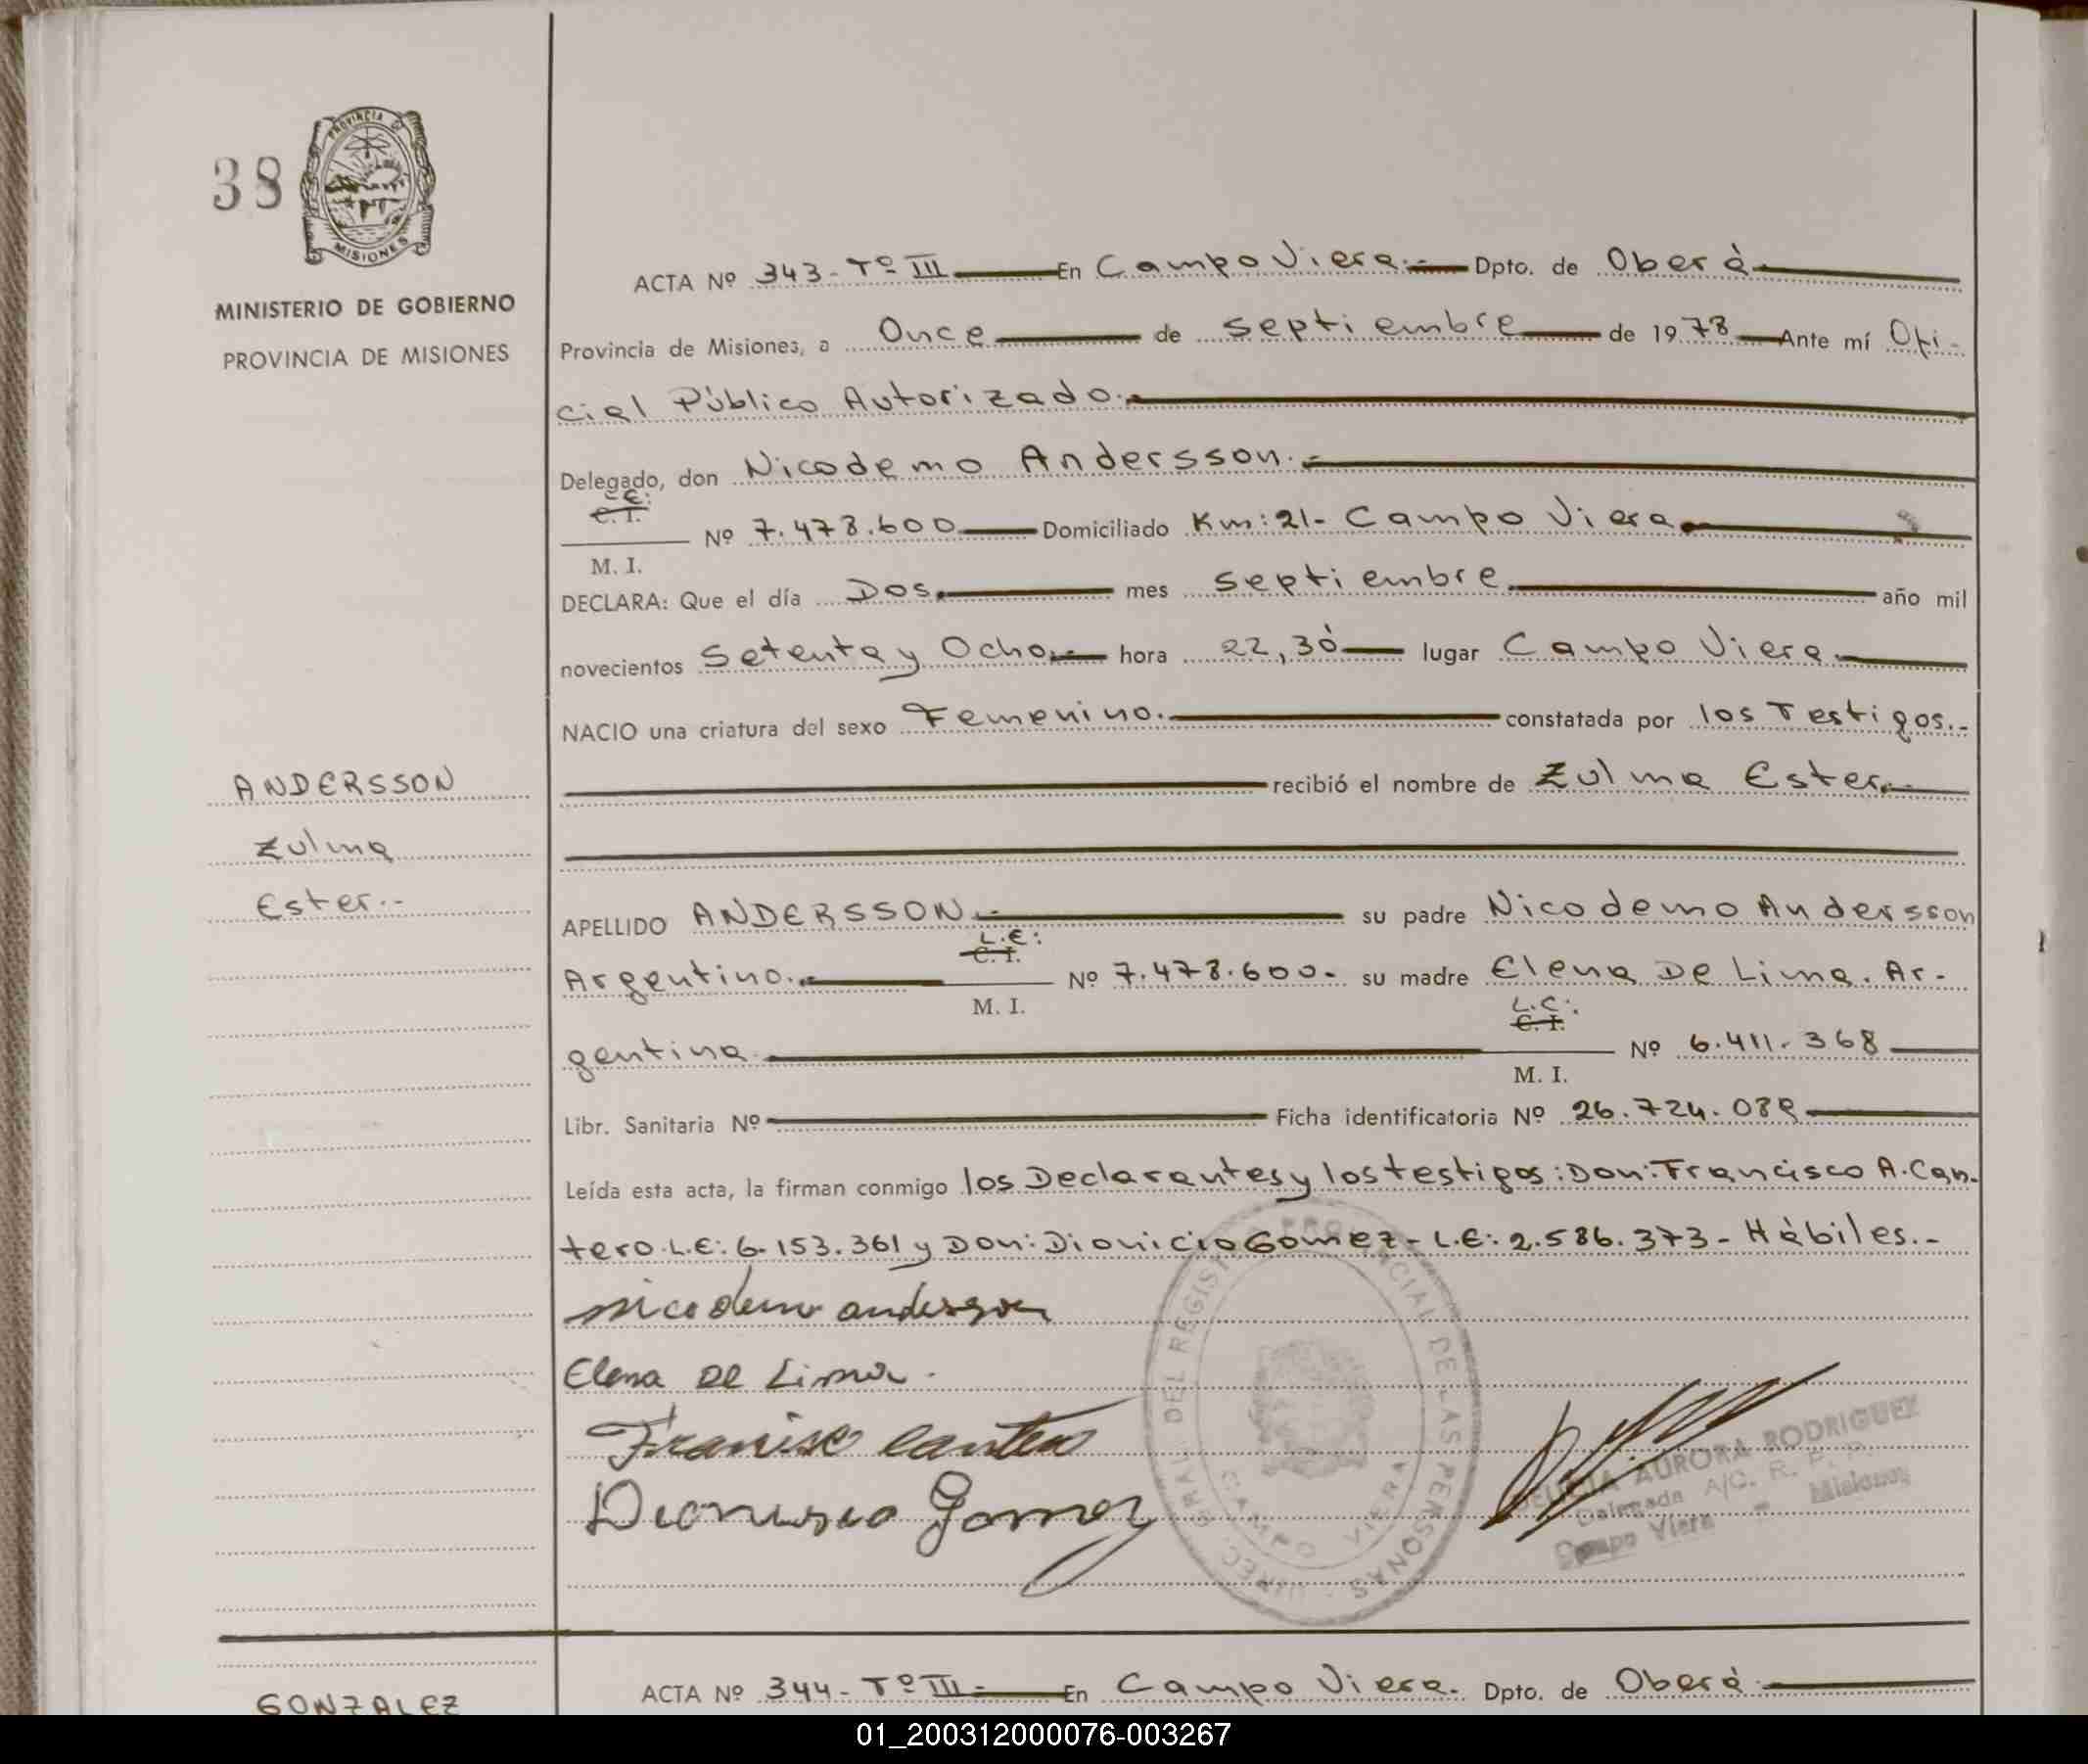 PROVINCIA DE
MISIONES
38
MINISTERIO DE GOBIERNO
PROVINCIA DE MISIONES
ACTA Nº 343- Tº III En Campo Viera.- Dpto. de Oberá
Provincia de Misiones, a Once de Septiembre de 1978 Ante mí Ofi-
cial Público Autorizado.
Delegado, don Nicodemo Andersson.-
C. I. M. I. Nº 7.478.600 Domiciliado Km: 21- Campo Viera
DECLARA: Que el día Dos mes Septiembre año mil
novecientos Setenta y Ocho.- hora 22,30 lugar Campo Viera
NACIO una criatura del sexo Femenino. constatada por los Testigos.-
recibió el nombre de Zulma Ester.
APELLIDO ANDERSSON.- su padre Nicodemo Andersson
Argentino. L.E: C. I. M. I. Nº 7.478.600- su madre Elena De Lima. Ar-
gentina. L.C: C. I. M. I. Nº 6.411.368
Libr. Sanitaria Nº Ficha identificatoria Nº 26.724.089
Leída esta acta, la firman conmigo los Declarantes y los testigos: Don: Francisco A. Can-
tero L.E: 6.153.361 y Don: Dionicio Gomez- L.E: 2.586.373- Hábiles.-
nicodemo andersson
Elena De Lima.
Francisco Cantero
Dionisio Gomez
DIREC. GRAL. DEL REGISTRO PROVINCIAL DE LAS PERSONAS
CAMPO VIERA
AURORA RODRIGUEZ
Delegada A/C. R. P. P.
Campo Viera - Misiones
ANDERSSON
Zulma
Ester.-
GONZALEZ
ACTA Nº 344- Tº III.- En Campo Viera. Dpto. de Oberá
01_200312000076-003267